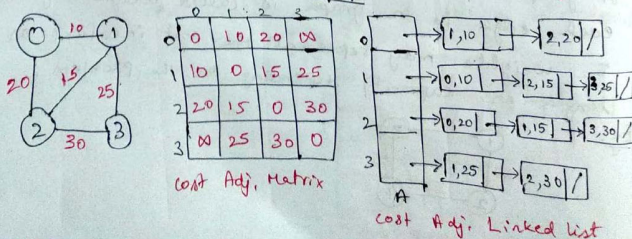 0 10 1
20 15 25
2 30 3
0 1 2 3
0 0 10 20 ∞
1 10 0 15 25
2 20 15 0 30
3 ∞ 25 30 0
Cost Adj. Matrix
0 1,10 2,20 /
1 0,10 2,15 3,25 /
2 0,20 1,15 3,30 /
3 1,25 2,30 /
A
Cost Adj. Linked list